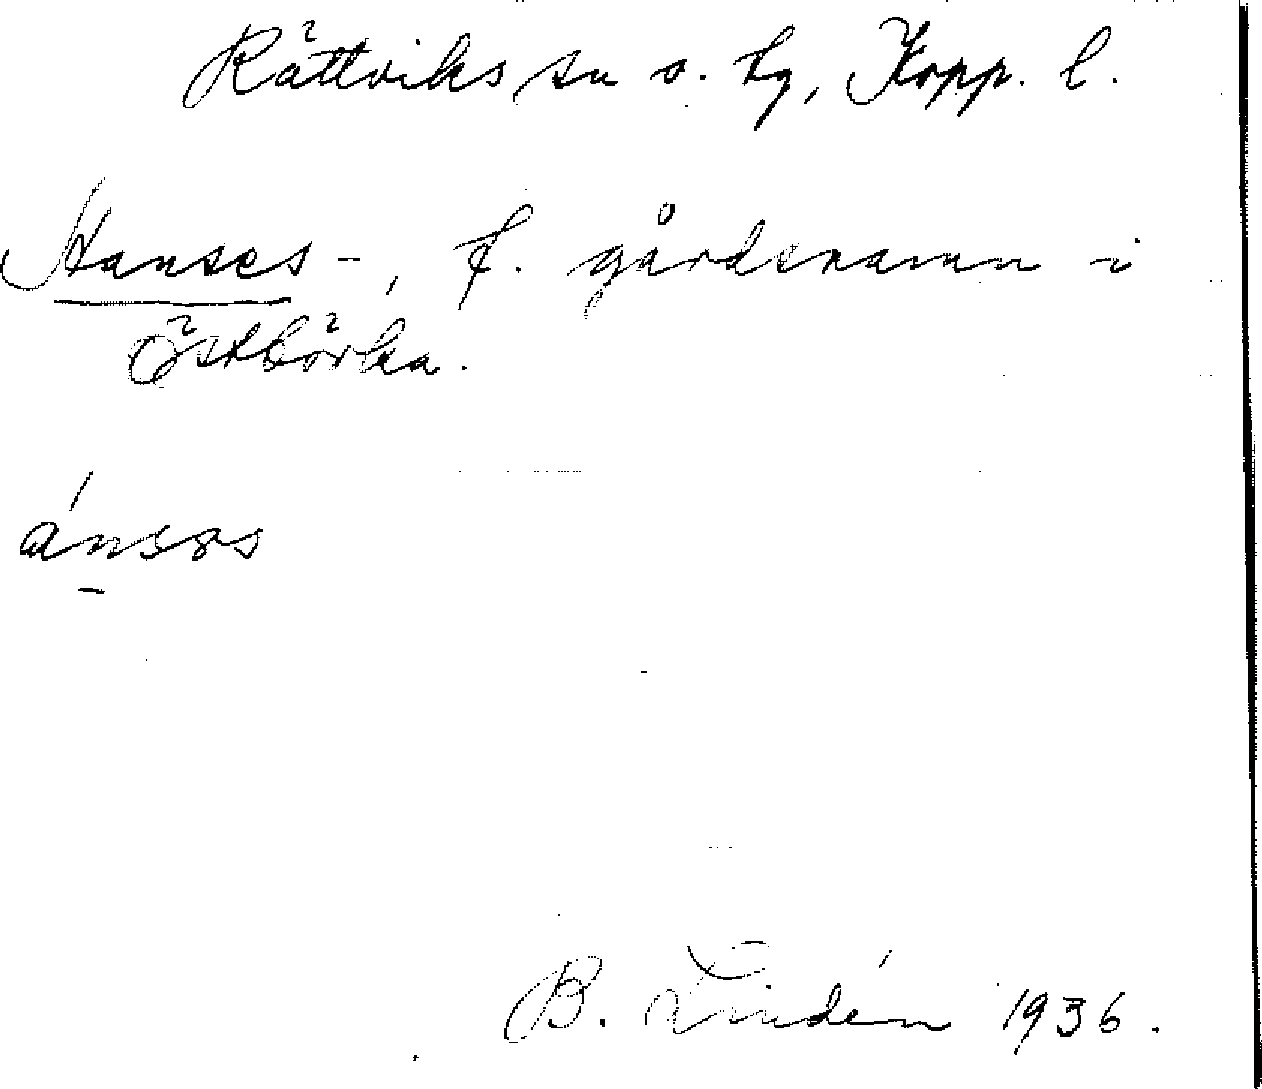 Rättviks sn o. tg, Kopp. l.
Hanses-, f. gårdsnamn i
Östbörka.
ánsəs
B. Lindén 1936.